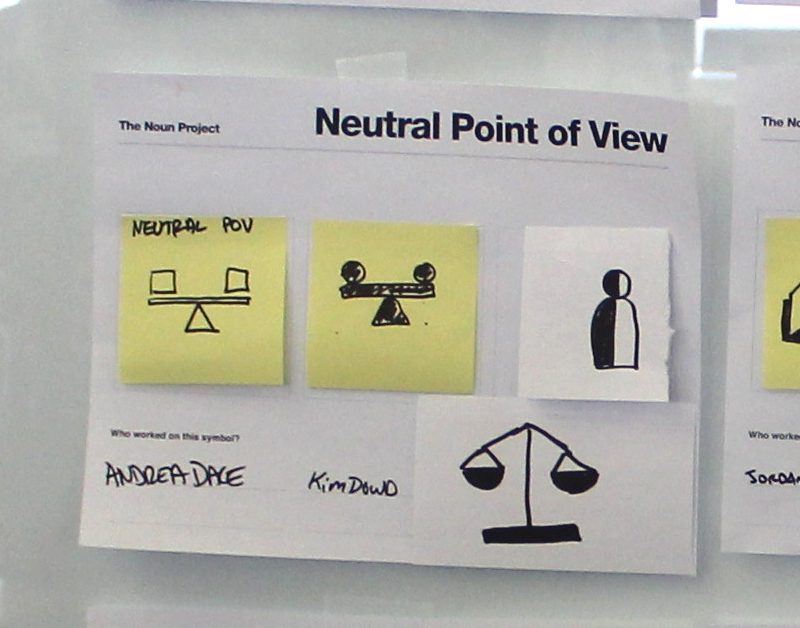 The Noun Project
Neutral Point of View
NEUTRAL POV
Who worked on this symbol?
ANDREA DALE
Kim DOWD
The No
Who worke
JORDAN